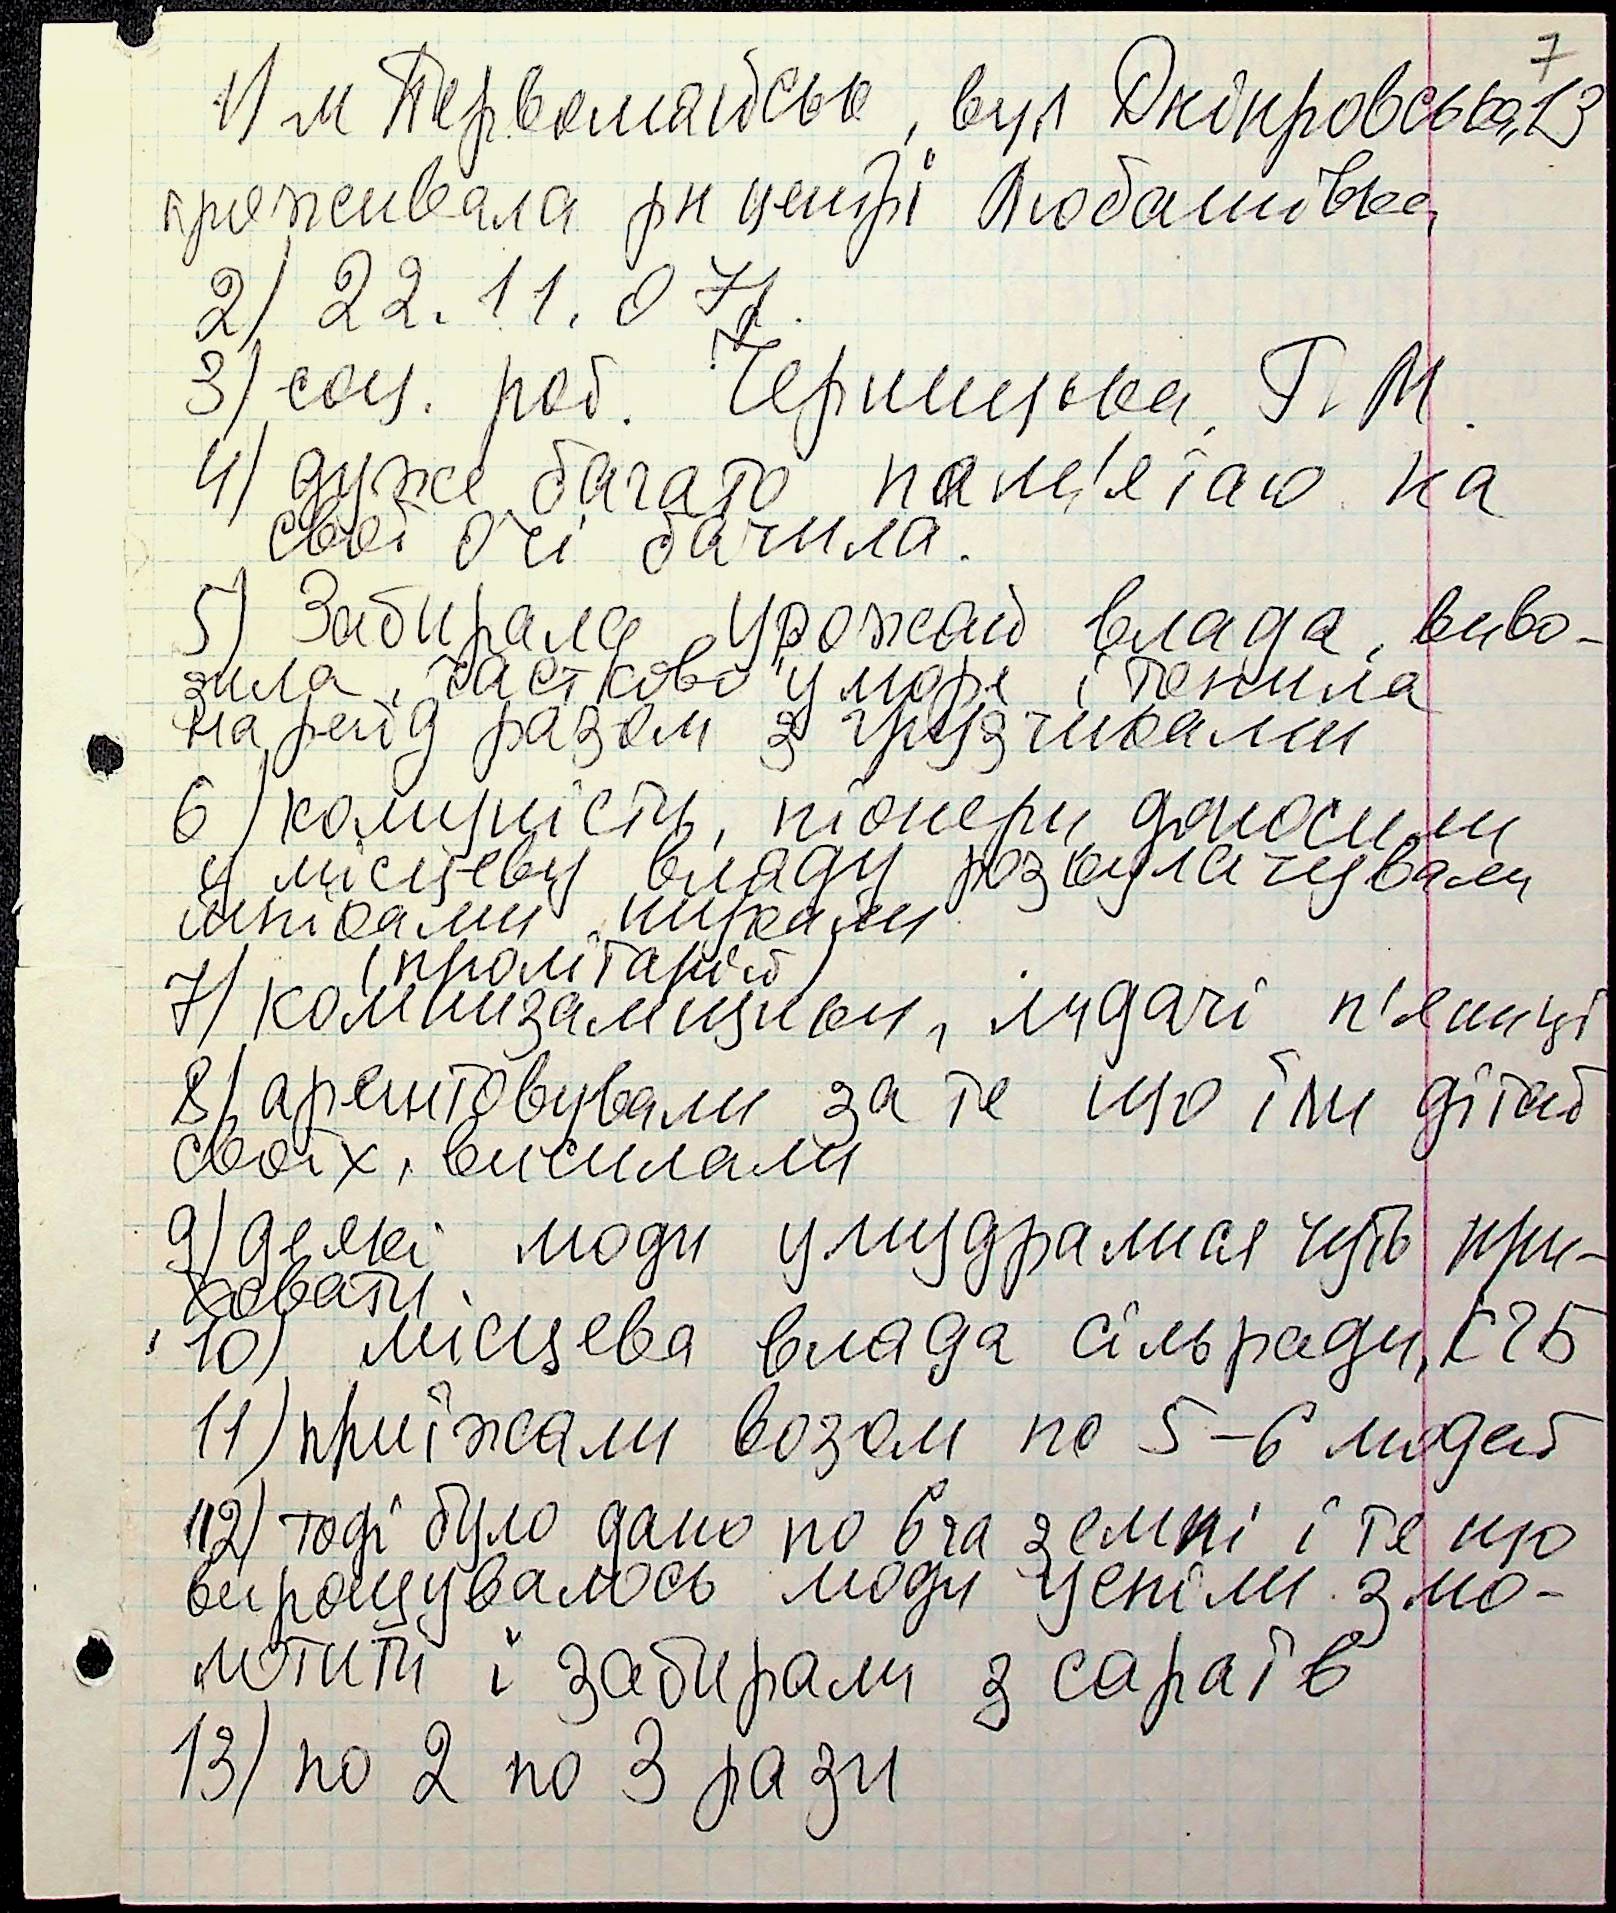 7
1) м Первомайськ, вул Дніпровська, 13
проживала рн центрі Любашівка
2) 22.11.07р.
3) соц. роб. Черницька Г. М.
4) дуже багато пам'ятаю на
свої очі бачила.
5) Забирала урожай влада, виво-
зила, частково у море і топила
на рейд разом з грузчиками
6) комуністи, піонери доносили
у місцеву владу розкулачували
шпіками шукали
(пролітарій)
7) комнизамицики, лидачі п'яниці
8) арештовували за те що їли дітей
своїх, висилали
9) деякі люди умудрялися чуть при-
ховати.
10) місцева влада сільради, КГБ
11) приїжали возом по 5-6 людей
12) тоді було дано по 6 га землі і те що
вирощувалось люди успіли змо-
лотити і забирали з сараїв
13) по 2 по 3 рази